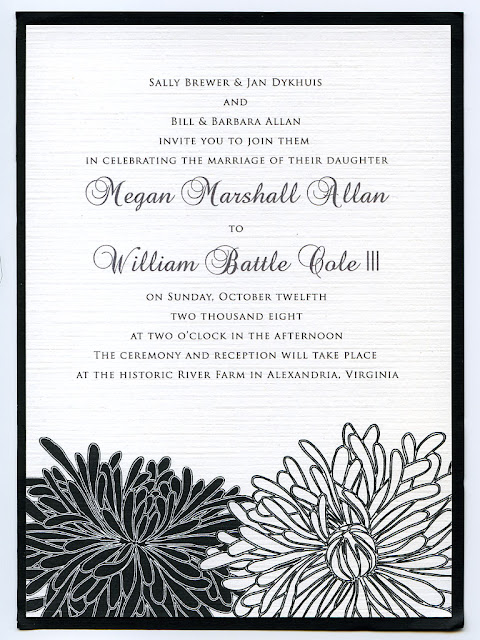 Sally Brewer & Jan Dykhuis
and
Bill & Barbara Allan
invite you to join them
in celebrating the marriage of their daughter
Megan Marshall Allan
to
William Battle Cole III
on Sunday, October twelfth
two thousand eight
at two o'clock in the afternoon
The ceremony and reception will take place
at the historic River Farm in Alexandria, Virginia